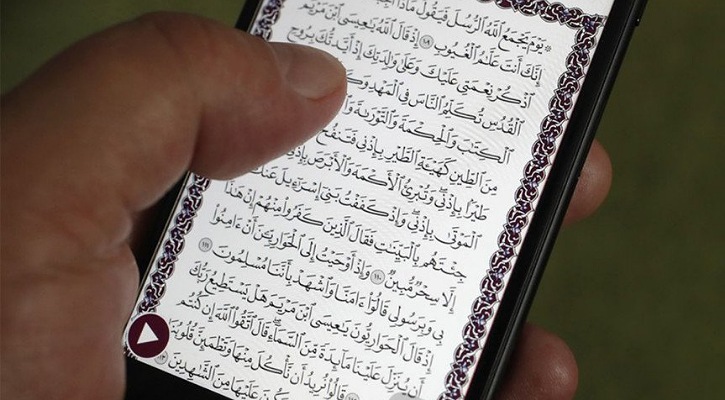 ۞ يَوْمَ يَجْمَعُ ٱللَّهُ ٱلرُّسُلَ فَيَقُولُ مَاذَآ
إِنَّكَ أَنتَ عَلَّٰمُ ٱلْغُيُوبِ ١٠٩ إِذْ قَالَ ٱللَّهُ يَٰعِيسَى ٱبْنَ مَرْيَمَ
ٱذْكُرْ نِعْمَتِى عَلَيْكَ وَعَلَىٰ وَٰلِدَتِكَ إِذْ أَيَّدتُّكَ بِرُوحِ
ٱلْقُدُسِ تُكَلِّمُ ٱلنَّاسَ فِى ٱلْمَهْدِ
ٱلْكِتَٰبَ وَٱلْحِكْمَةَ وَٱلتَّوْرَىٰةَ
مِنَ ٱلطِّينِ كَهَيْـَٔةِ ٱلطَّيْرِ بِإِذْنِى فَتَنفُخُ
طَيْرًۢا بِإِذْنِى وَتُبْرِئُ ٱلْأَكْمَهَ وَٱلْأَبْرَصَ بِإِذْنِى
ٱلْمَوْتَىٰ بِإِذْنِى وَإِذْ كَفَفْتُ بَنِىٓ إِسْرَٰٓءِيلَ عَنكَ
جِئْتَهُم بِٱلْبَيِّنَٰتِ فَقَالَ ٱلَّذِينَ كَفَرُوا۟ مِنْهُمْ إِنْ هَٰذَآ
إِلَّا سِحْرٌ مُّبِينٌ ١١٠ وَإِذْ أَوْحَيْتُ إِلَى ٱلْحَوَارِيِّـۧنَ أَنْ ءَامِنُوا۟
بِى وَبِرَسُولِى قَالُوٓا۟ ءَامَنَّا وَٱشْهَدْ بِأَنَّنَا مُسْلِمُونَ ١١١
إِذْ قَالَ ٱلْحَوَارِيُّونَ يَٰعِيسَى ٱبْنَ مَرْيَمَ هَلْ يَسْتَطِيعُ رَبُّكَ
أَن يُنَزِّلَ عَلَيْنَا مَآئِدَةً مِّنَ ٱلسَّمَآءِ قَالَ ٱتَّقُوا۟ ٱللَّهَ إِن كُنتُم
قَالُوا۟ نُرِيدُ أَن نَّأْكُلَ مِنْهَا وَتَطْمَئِنَّ قُلُوبُنَا
عَلَيْهَا مِنَ ٱلشَّٰهِدِينَ ١١٣